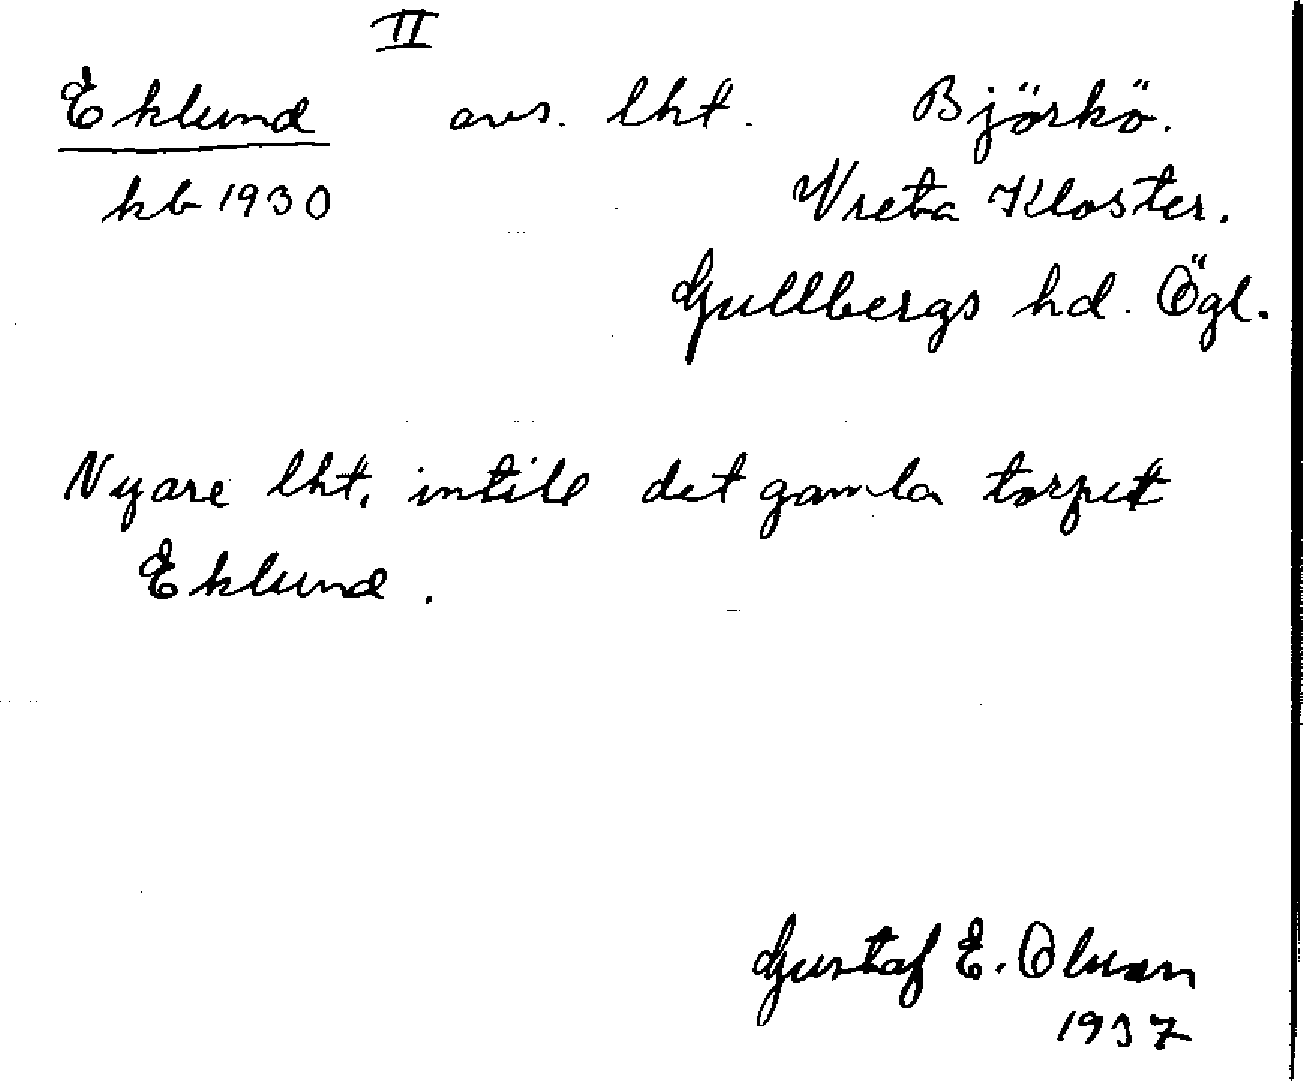 II
Eklund avs. lht. Björkö.
kb 1930 Vreta Kloster.
Gullbergs hd. Ögl.
Nyare lht. intill det gamla torpet
Eklund.
Gustaf E. Olsson
1937